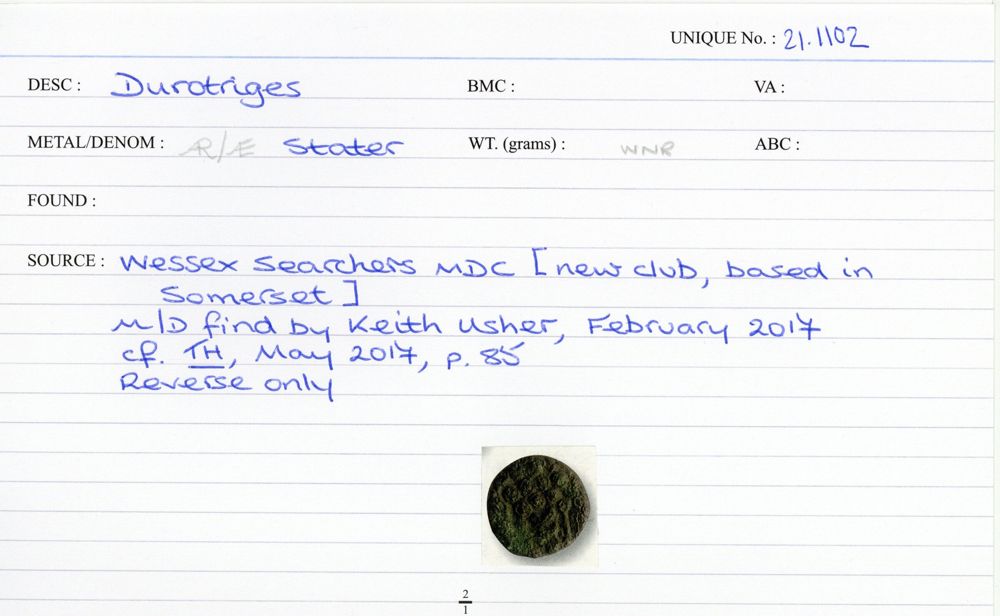 UNIQUE No. : 21.1102
DESC : Durotriges BMC : VA :
METAL/DENOM : Æ/Æ Stater WT. (grams) : WNR ABC :
FOUND :
SOURCE : Wessex Searchers MDC [new club, based in
Somerset]
M/D find by Keith Usher, February 2017
cf. TH, May 2017, p. 85
Reverse only
2
1